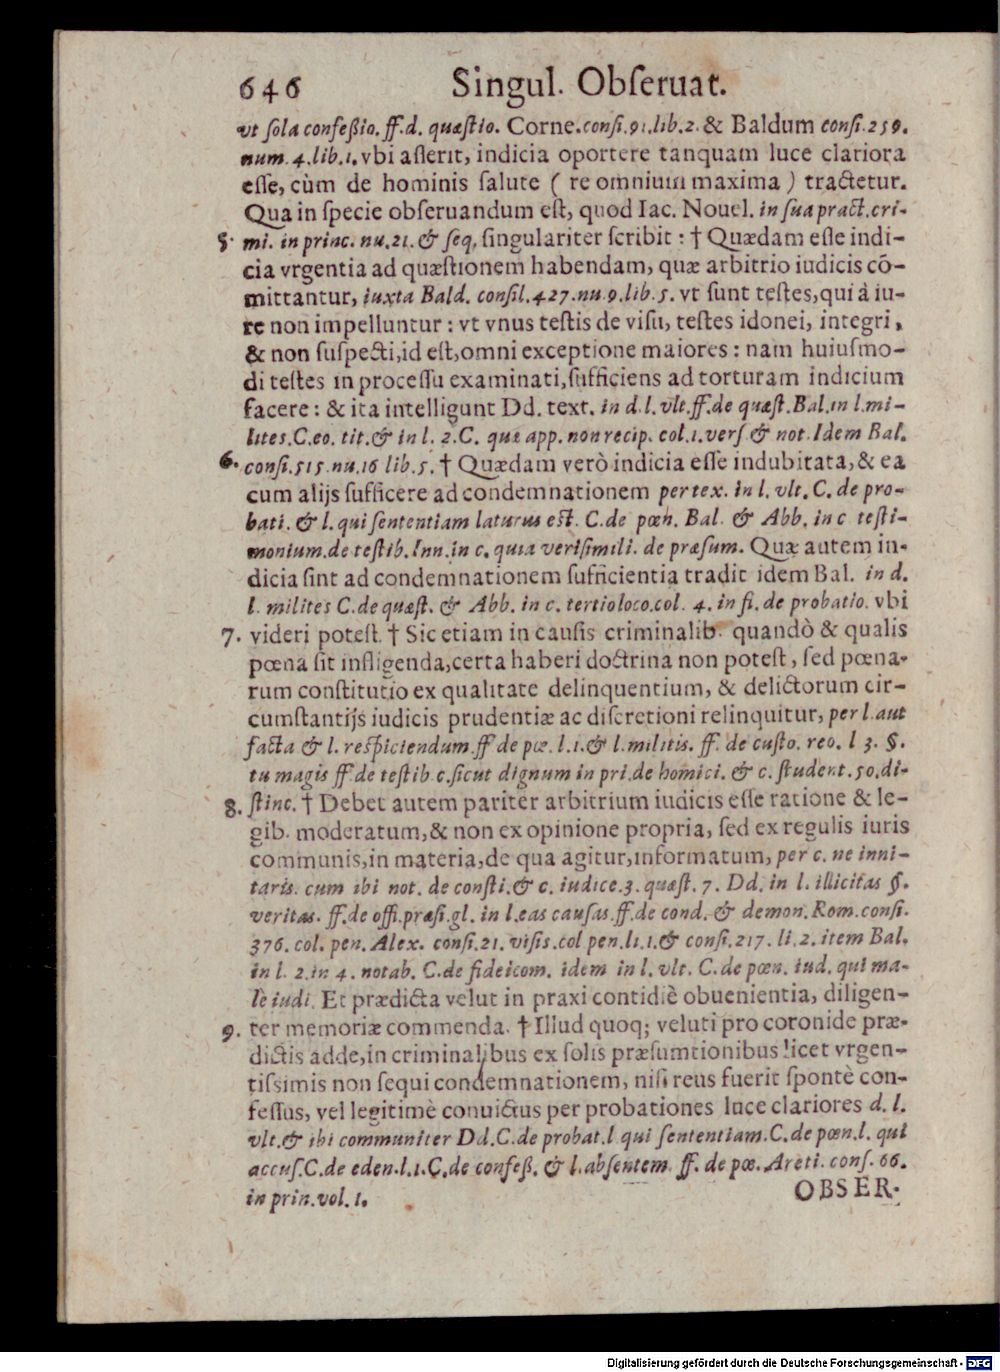 646 Singul. Obſeruat.
vt ſola confeßio. ff. d. quæſtio. Corne. conſi. 91. lib. 2. & Baldum conſi. 259.
num. 4. lib. 1. vbi aſſerit, indicia oportere tanquam luce clariora
eſſe, cùm de hominis ſalute ( re omnium maxima ) tractetur.
Qua in ſpecie obſeruandum eſt, quod Iac. Nouel. in ſua pract. cri-
5. mi. in princ. nu. 21. & ſeq, ſingulariter ſcribit : † Quædam eſſe indi-
cia vrgentia ad quæſtionem habendam, quæ arbitrio iudicis cō-
mittantur, iuxta Bald. conſil. 427. nu. 9. lib. 5. vt ſunt teſtes, qui à iu-
re non impelluntur : vt vnus teſtis de viſu, teſtes idonei, integri,
& non ſuſpecti, id eſt, omni exceptione maiores : nam huiuſmo-
di teſtes in proceſſu examinati, ſufficiens ad torturam indicium
facere : & ita intelligunt Dd. text. in d. l. vlt. ff. de quæſt. Bal. in l. mi-
lites. C. eo. tit. & in l. 2. C. quæ app. non recip. col. 1. verſ & not. Idem Bal.
6. conſi. 515. nu. 16 lib. 5. † Quædam verò indicia eſſe indubitata, & ea
cum alijs ſufficere ad condemnationem per tex. in l. vlt. C. de pro-
bati. & l. qui ſententiam laturus eſt. C. de pœn. Bal. & Abb. in c teſti-
monium. de teſtib. Inn. in c. quia veriſimili. de præſum. Quæ autem in-
dicia ſint ad condemnationem ſufficientia tradit idem Bal. in d.
l. milites C. de quæſt. & Abb. in c. tertio loco. col. 4. in fi. de probatio. vbi
7. videri poteſt. † Sic etiam in cauſis criminalib. quandò & qualis
pœna ſit infligenda, certa haberi doctrina non poteſt, ſed pœna-
rum conſtitutio ex qualitate delinquentium, & delictorum cir-
cumſtantijs iudicis prudentiæ ac diſcretioni relinquitur, per l. aut
facta & l. reſpiciendum. ff de pœ. l. 1. & l. militis. ff. de cuſto. reo. l 3. §.
tu magis ff. de teſtib c. ſicut dignum in pri. de homici. & c. ſtudent. 50. di-
8. ſtinc. † Debet autem pariter arbitrium iudicis eſſe ratione & le-
gib. moderatum, & non ex opinione propria, ſed ex regulis iuris
communis, in materia, de qua agitur, informatum, per c. ne inni-
taris. cum ibi not. de conſti. & c. iudice. 3. quæſt. 7. Dd. in l. illicitas §.
veritas. ff. de offi. præſi. gl. in l. eas cauſas. ff. de cond. & demon. Rom. conſi.
376. col. pen. Alex. conſi. 21. viſis. col pen. li. 1. & conſi. 217. li. 2. item Bal.
in l. 2. in 4. notab. C. de fideicom. idem in l. vlt. C. de pœn. iud. qui ma-
lè iudi. Et prædicta velut in praxi contidiè obuenientia, diligen-
9. ter memoriæ commenda. † Illud quoq; veluti pro coronide præ-
dictis adde, in criminalibus ex ſolis præſumtionibus licet vrgen-
tiſsimis non ſequi condemnationem, niſi reus fuerit ſpontè con-
feſſus, vel legitimè conuictus per probationes luce clariores d. l.
vlt. & ibi communiter Dd. C. de probat. l qui ſententiam. C. de pœn. l. qui
accuſ. C. de eden. l. 1. C. de confeß. & l. abſentem. ff. de pœ. Areti. conſ. 66.
in prin. vol. 1.
OBSER-
Digitalisierung gefördert durch die Deutsche Forschungsgemeinschaft - DFG